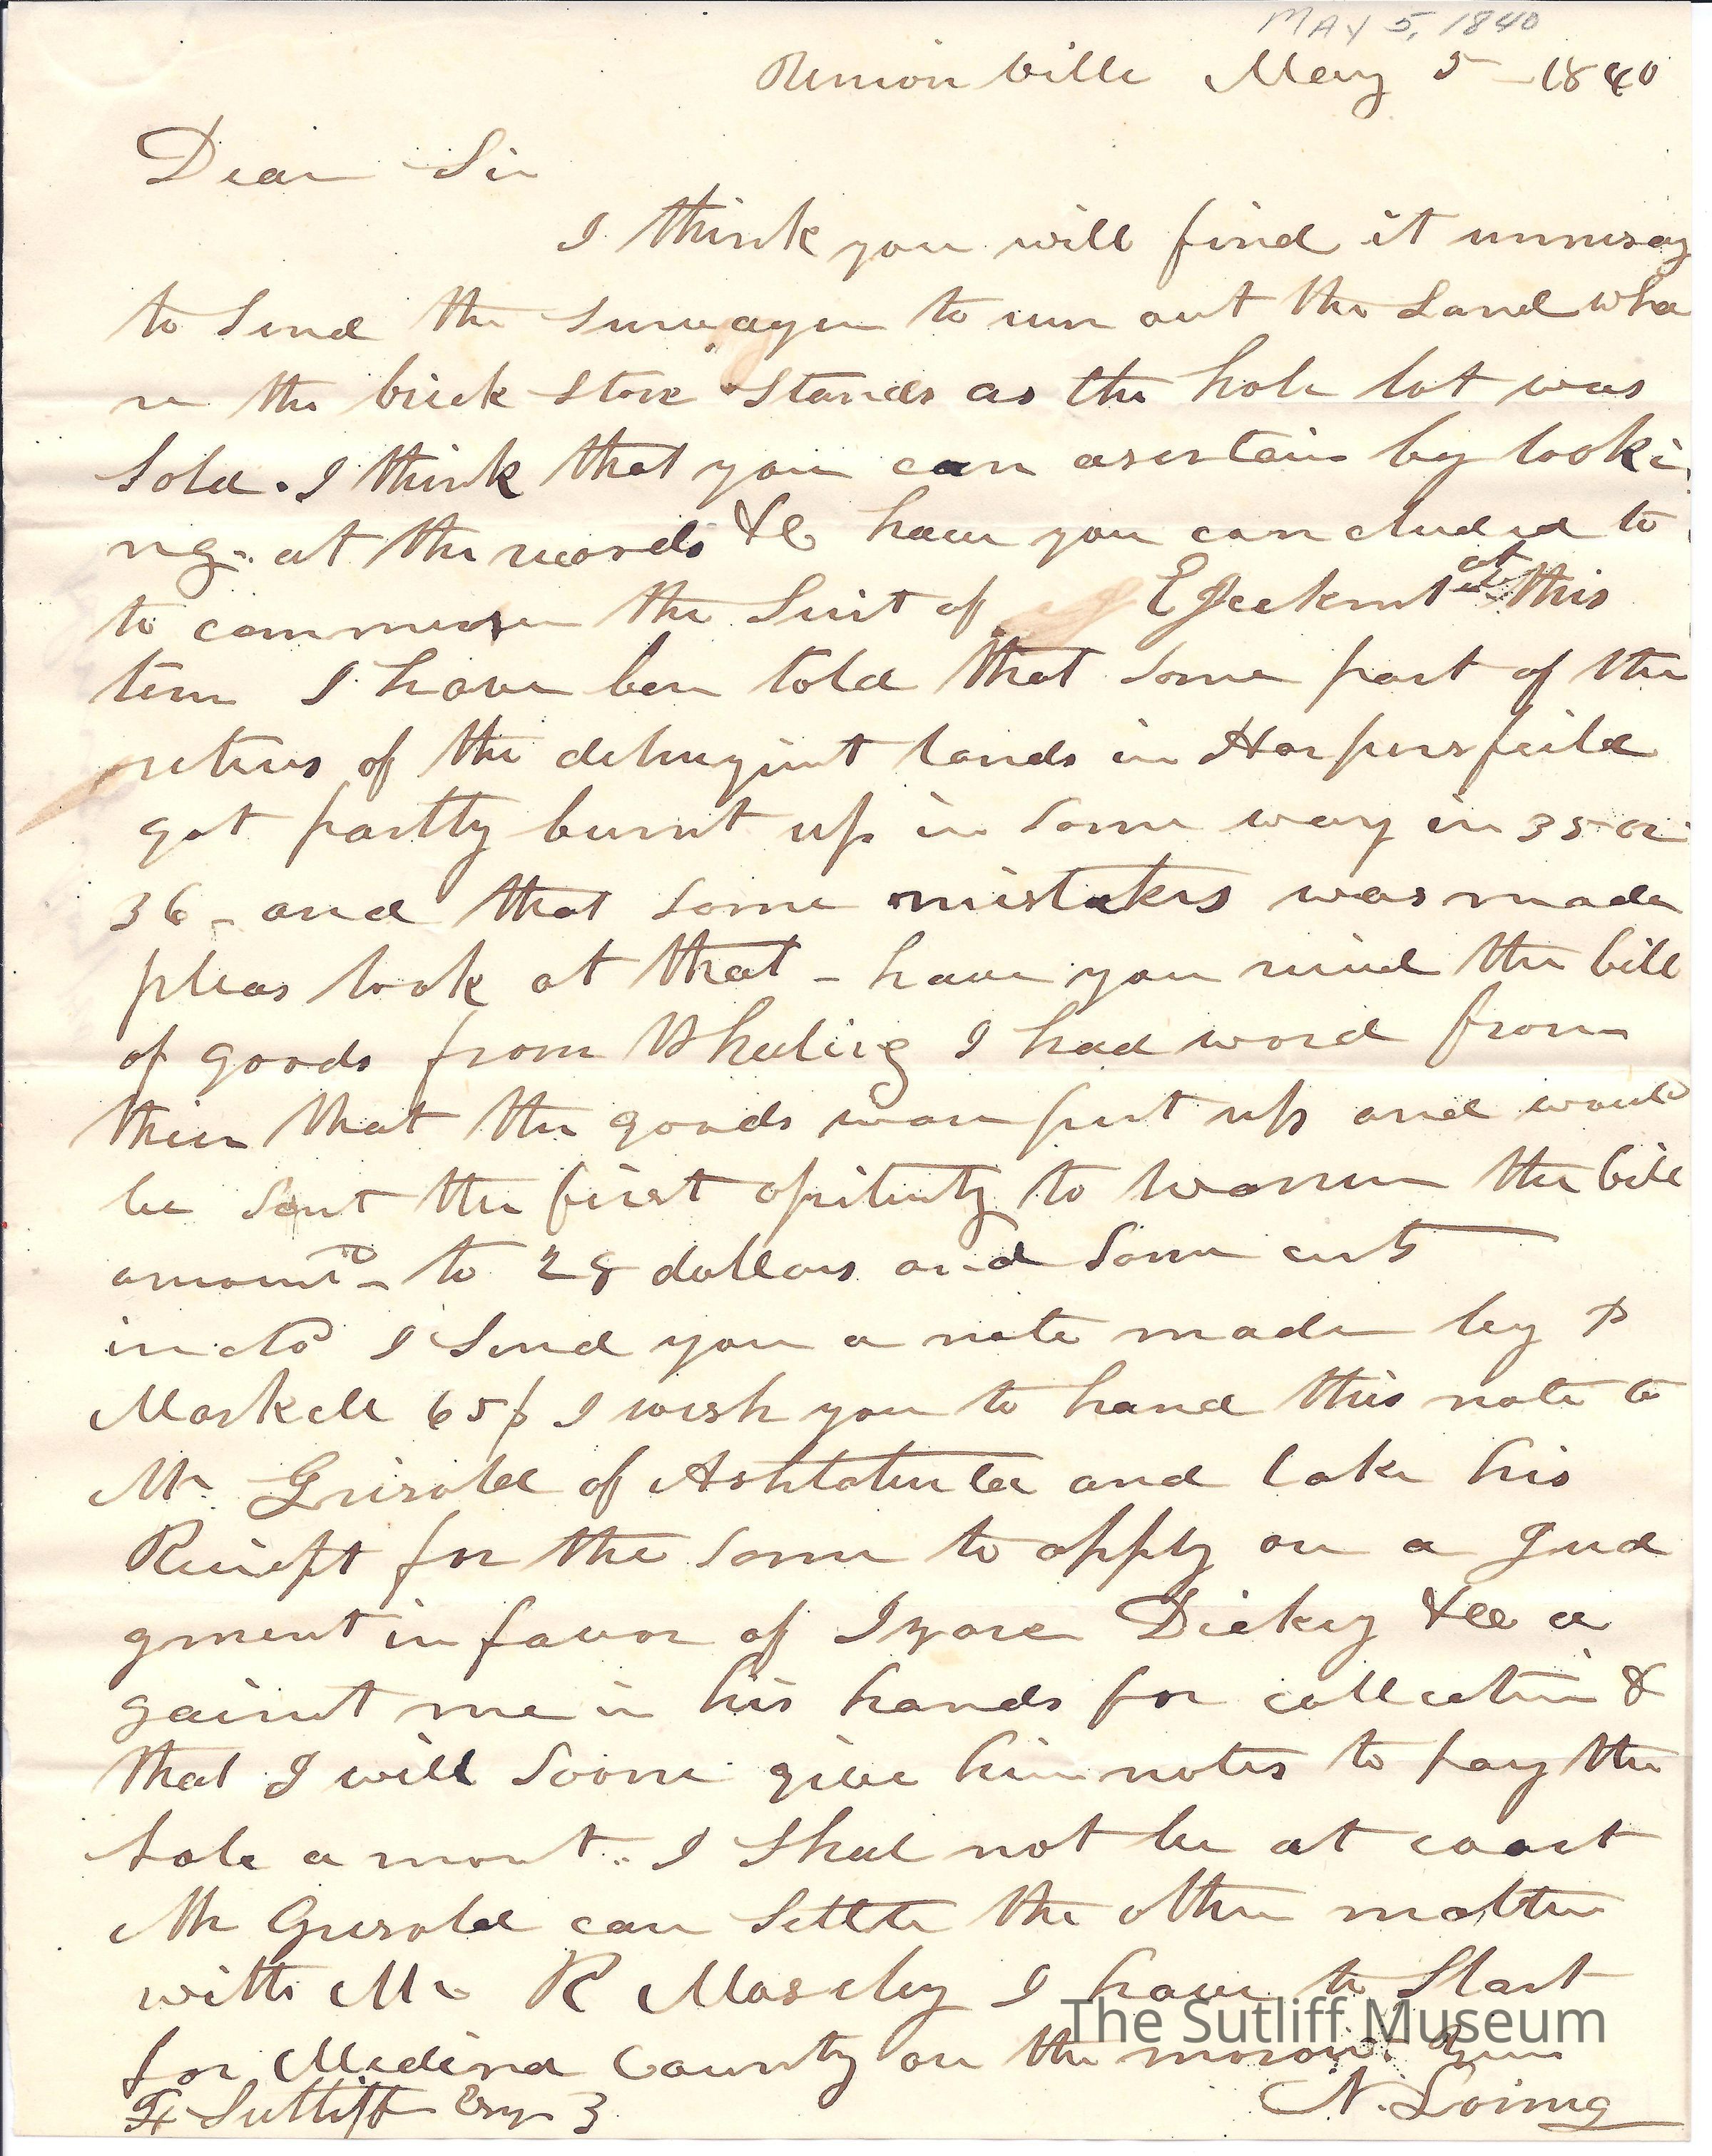 MAY 5, 1840
Unionville May 5 - 1840
Dear Sir
I think you will find it unnesay
to Send the Survayer to run out the Land wha
re the brick Store Stands as the hole lot was
Sold. I think that you can asertain by looki
ng. at the records &c have you concluded to
to commence the Suit of Ejectmt at this
term I have ben told that Some part of the
returs of the delinquint lands in Harpersfeild
got partly burnt up in Some way in 35 or
36 - and that Some mistakes was made
pleas look at that - have you recived the bill
of goods from Wheeling I had word from
thier that the goods ware put up and would
be Sent the first opituty to Warren the bill
amount to 28 dollars and Some cents
I Send you a note made by P
Markell 65 I wish you to hand this note to
Mr Grisold of Ashtatubla and take his
Reciept for the Same to apply on a Jud
gment in favor of Dickey &Co a
gainst me in his hands for collection &
that I will Soone give him notes to pay the
hole amont.. I Shal not be at coart
Mr Grisold can Settle the other matter
with Mr R Moseley I have to Start
for Medina County on the morow.
F Sutliff Esqr 3
N. Loring
The Sutliff Museum